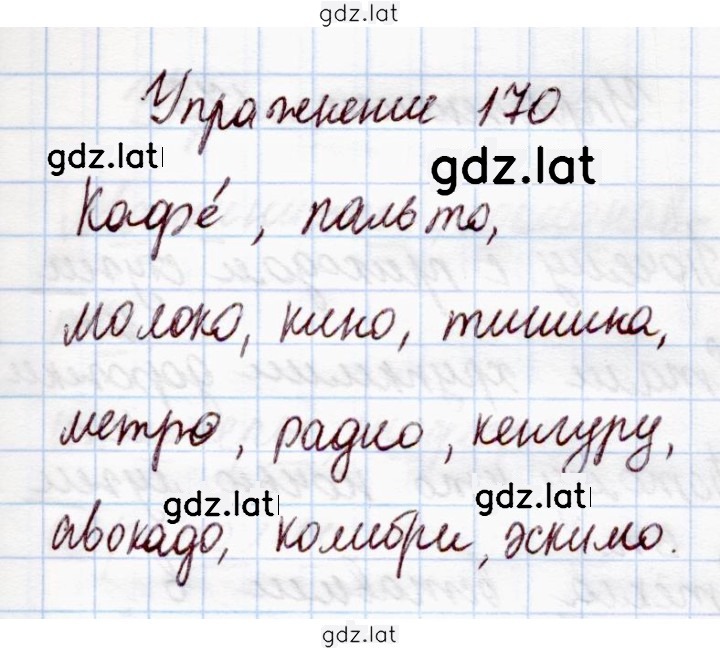 gdz.lat
Упражнение 170
gdz.lat
gdz.lat
Кафе́, пальто,
молоко, кино, тишина,
метро, радио, кенгуру,
gdz.lat
gdz.lat
авокадо, колибри, эскимо.
gdz.lat